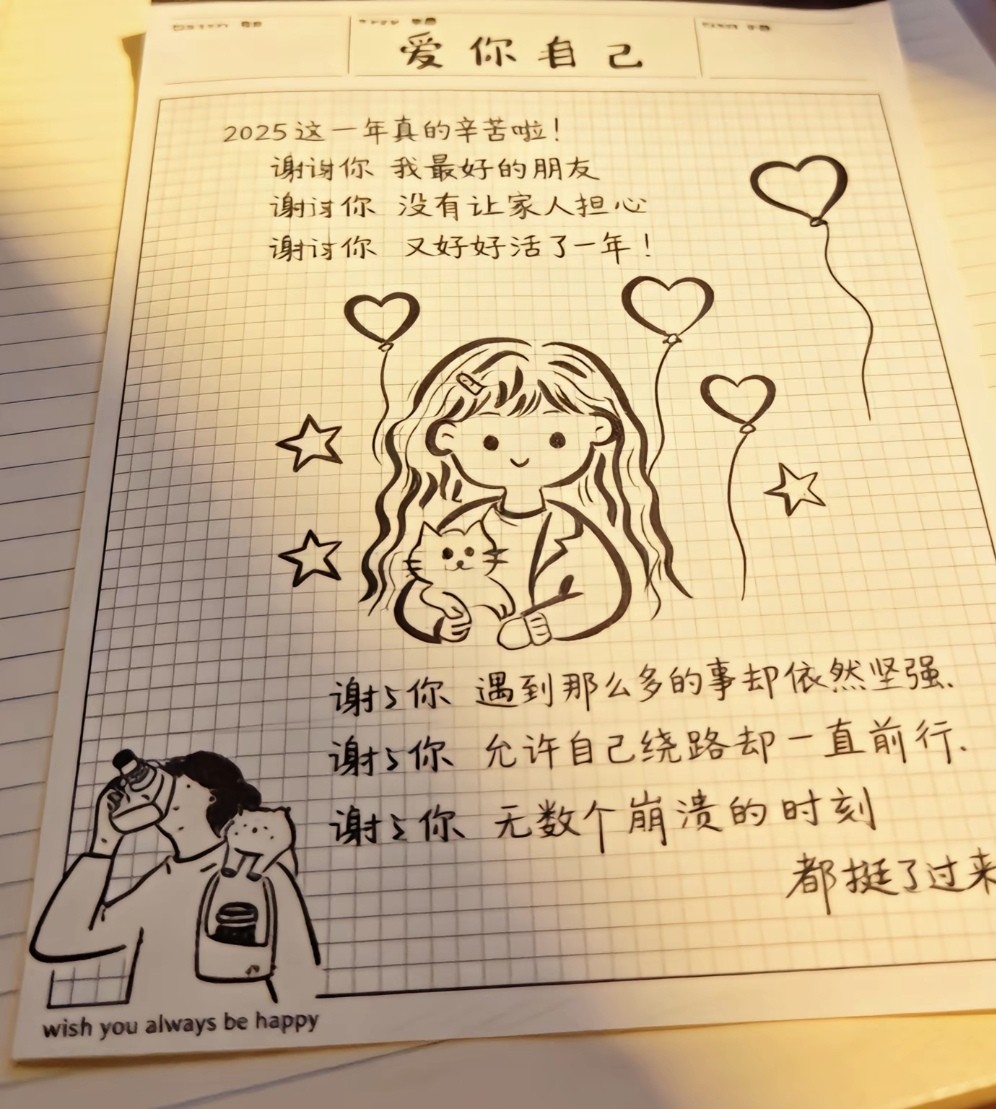 爱你自己
2025这一年真的辛苦啦！
谢谢你 我最好的朋友
谢谢你 没有让家人担心
谢谢你 又好好活了一年！
谢谢你 遇到那么多的事却依然坚强.
谢谢你 允许自己绕路却一直前行.
谢谢你 无数个崩溃的时刻
都挺了过来
wish you always be happy